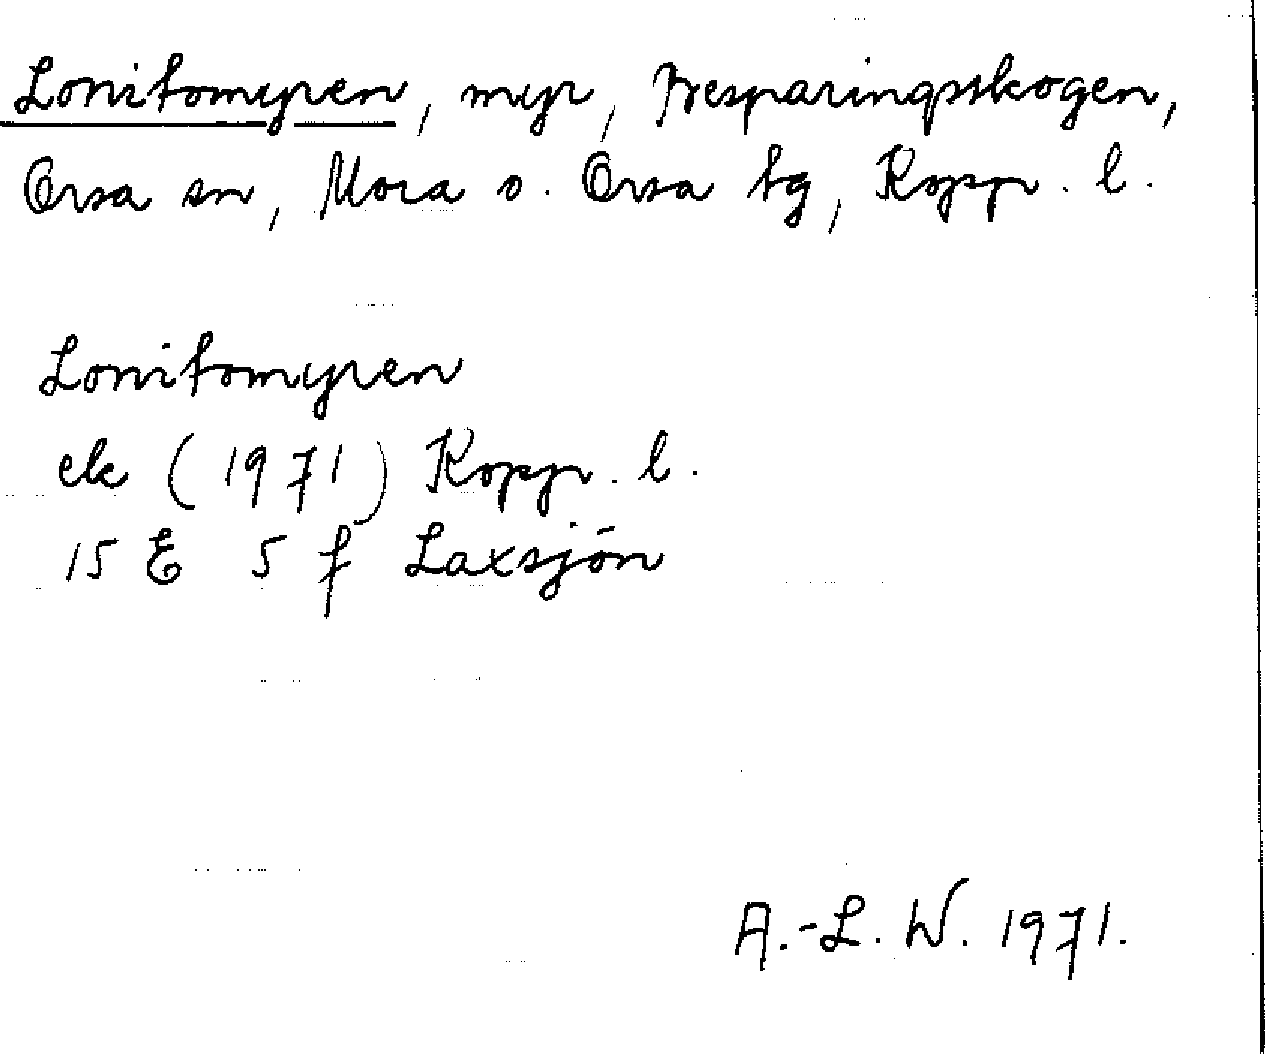 Lonitomyren, myr, Besparingsskogen,
Orsa sn, Mora o. Orsa tg, Kopp. l.
Lonitomyren
ek (1971) Kopp. l.
15 E 5 f Laxsjön
A.-L. W. 1971.